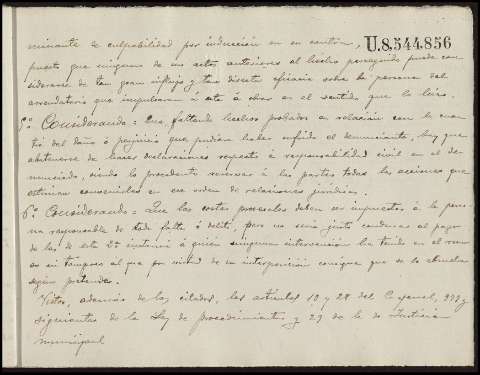 U.8.544.856
minante de culpabilidad por inducción en su contra,
puesto que ninguno de sus actos anteriores al hecho perseguido puede con
siderarse de tan gran influjo y tan directa eficacia sobre la persona del
arrendatario que impulsaran á este á obrar en el sentido que lo hizo.
5º Considerando = Que faltando hechos probados en relación con la cuan
tía del daño ó perjuicio que pudiera haber sufrido el denunciante, hay que
abstenerse de hacer declaraciones respecto á responsabilidad civil en el de
nunciado, siendo lo procedente reservar á las partes todas las acciones que
estimen convenirles en ese orden de relaciones jurídicas.
6º Considerando = Que las costas procesales deben ser impuestas á la perso
na responsable de toda falta ó delito, pero no sería justo condenar al pago
de las de esta 2ª instancia á quien ninguna intervención ha tenido en el recur
so ni tampoco al que por virtud de su interposición consigue que se le absuelva
según pretende.
Vistos, además de los citados, los artículos 10 y 28 del C. penal, 
siguientes de la Ley de procedimientos y 29 de la de Justicia
municipal